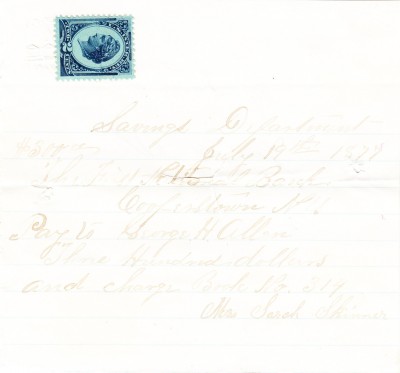 Savings Department
$300 July 19th 1879
The National Bank
Cooperstown N.Y.
Pay to George H Allen
Three Hundred dollars
and charge Book No. 317
Mrs Sarah Skinner